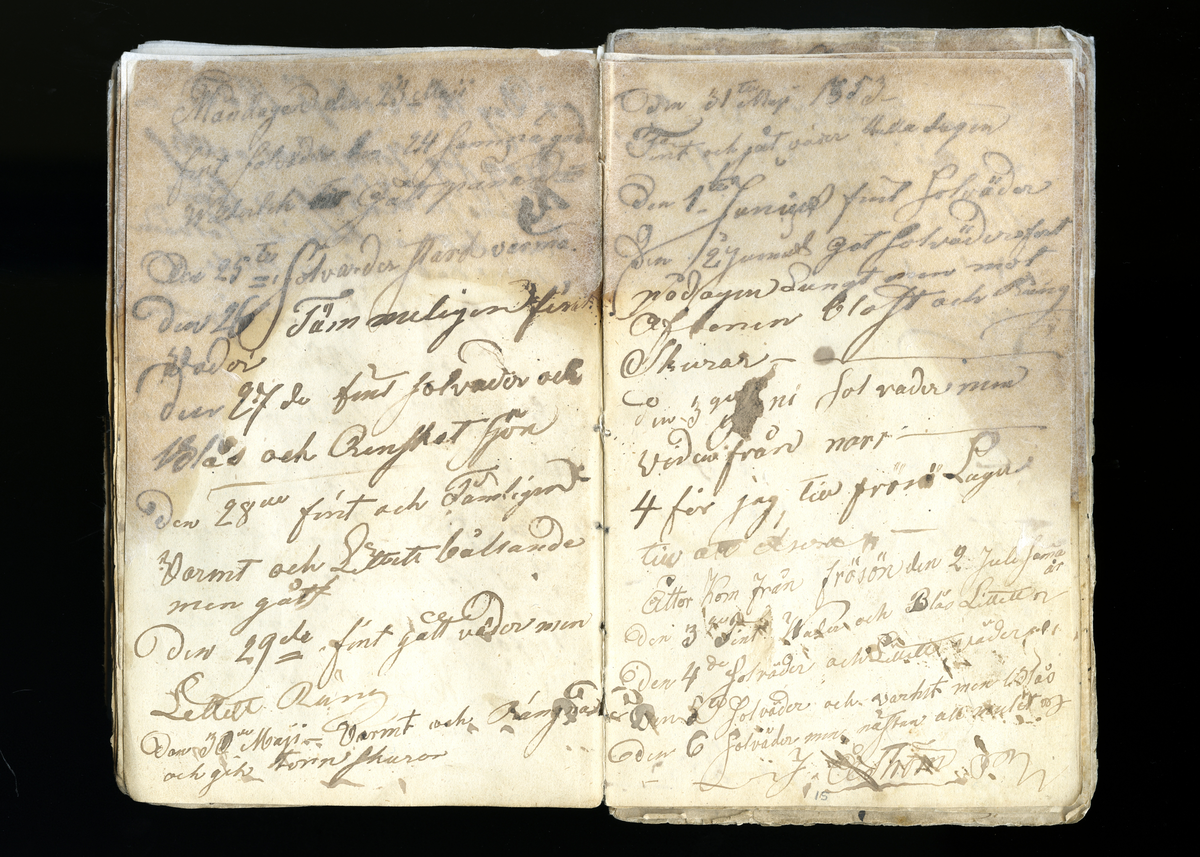 Måndagen den 23 Maii
fint solväder den 24
Den 25te Solvæder starb varme
Den 26 Tämmeligen fint
Wäder
den 27 de fint solvader och
Blås och Renskat sjön
Den 28 fint och Tämligen
Varmt och Littett blåsande
men gått
Den 29de fint gått väder men
Lettett Räng
Den 30 Maji Varmt och Räng
och gik torın skuror
Den 31te Maj 1853
Fint och gåt väder hella dagen
Den 1te Junius fint solväder
Den 2 Junius got solväder fort
på dagen Lungt men mot
Aftenen blåst och Räng
Skurar
den 3 ni sol väder men
vinden från norr
4 för jag till frösö Läger
till att
Åtter Kom från frösön den 2 Juli sama år
Den 3 fint Wäder och Blås Littett
Den 4de Solväder och Littett
Den 5 Solväder och varmt men blås
Den 6 Solväder men nästan all mulet
15